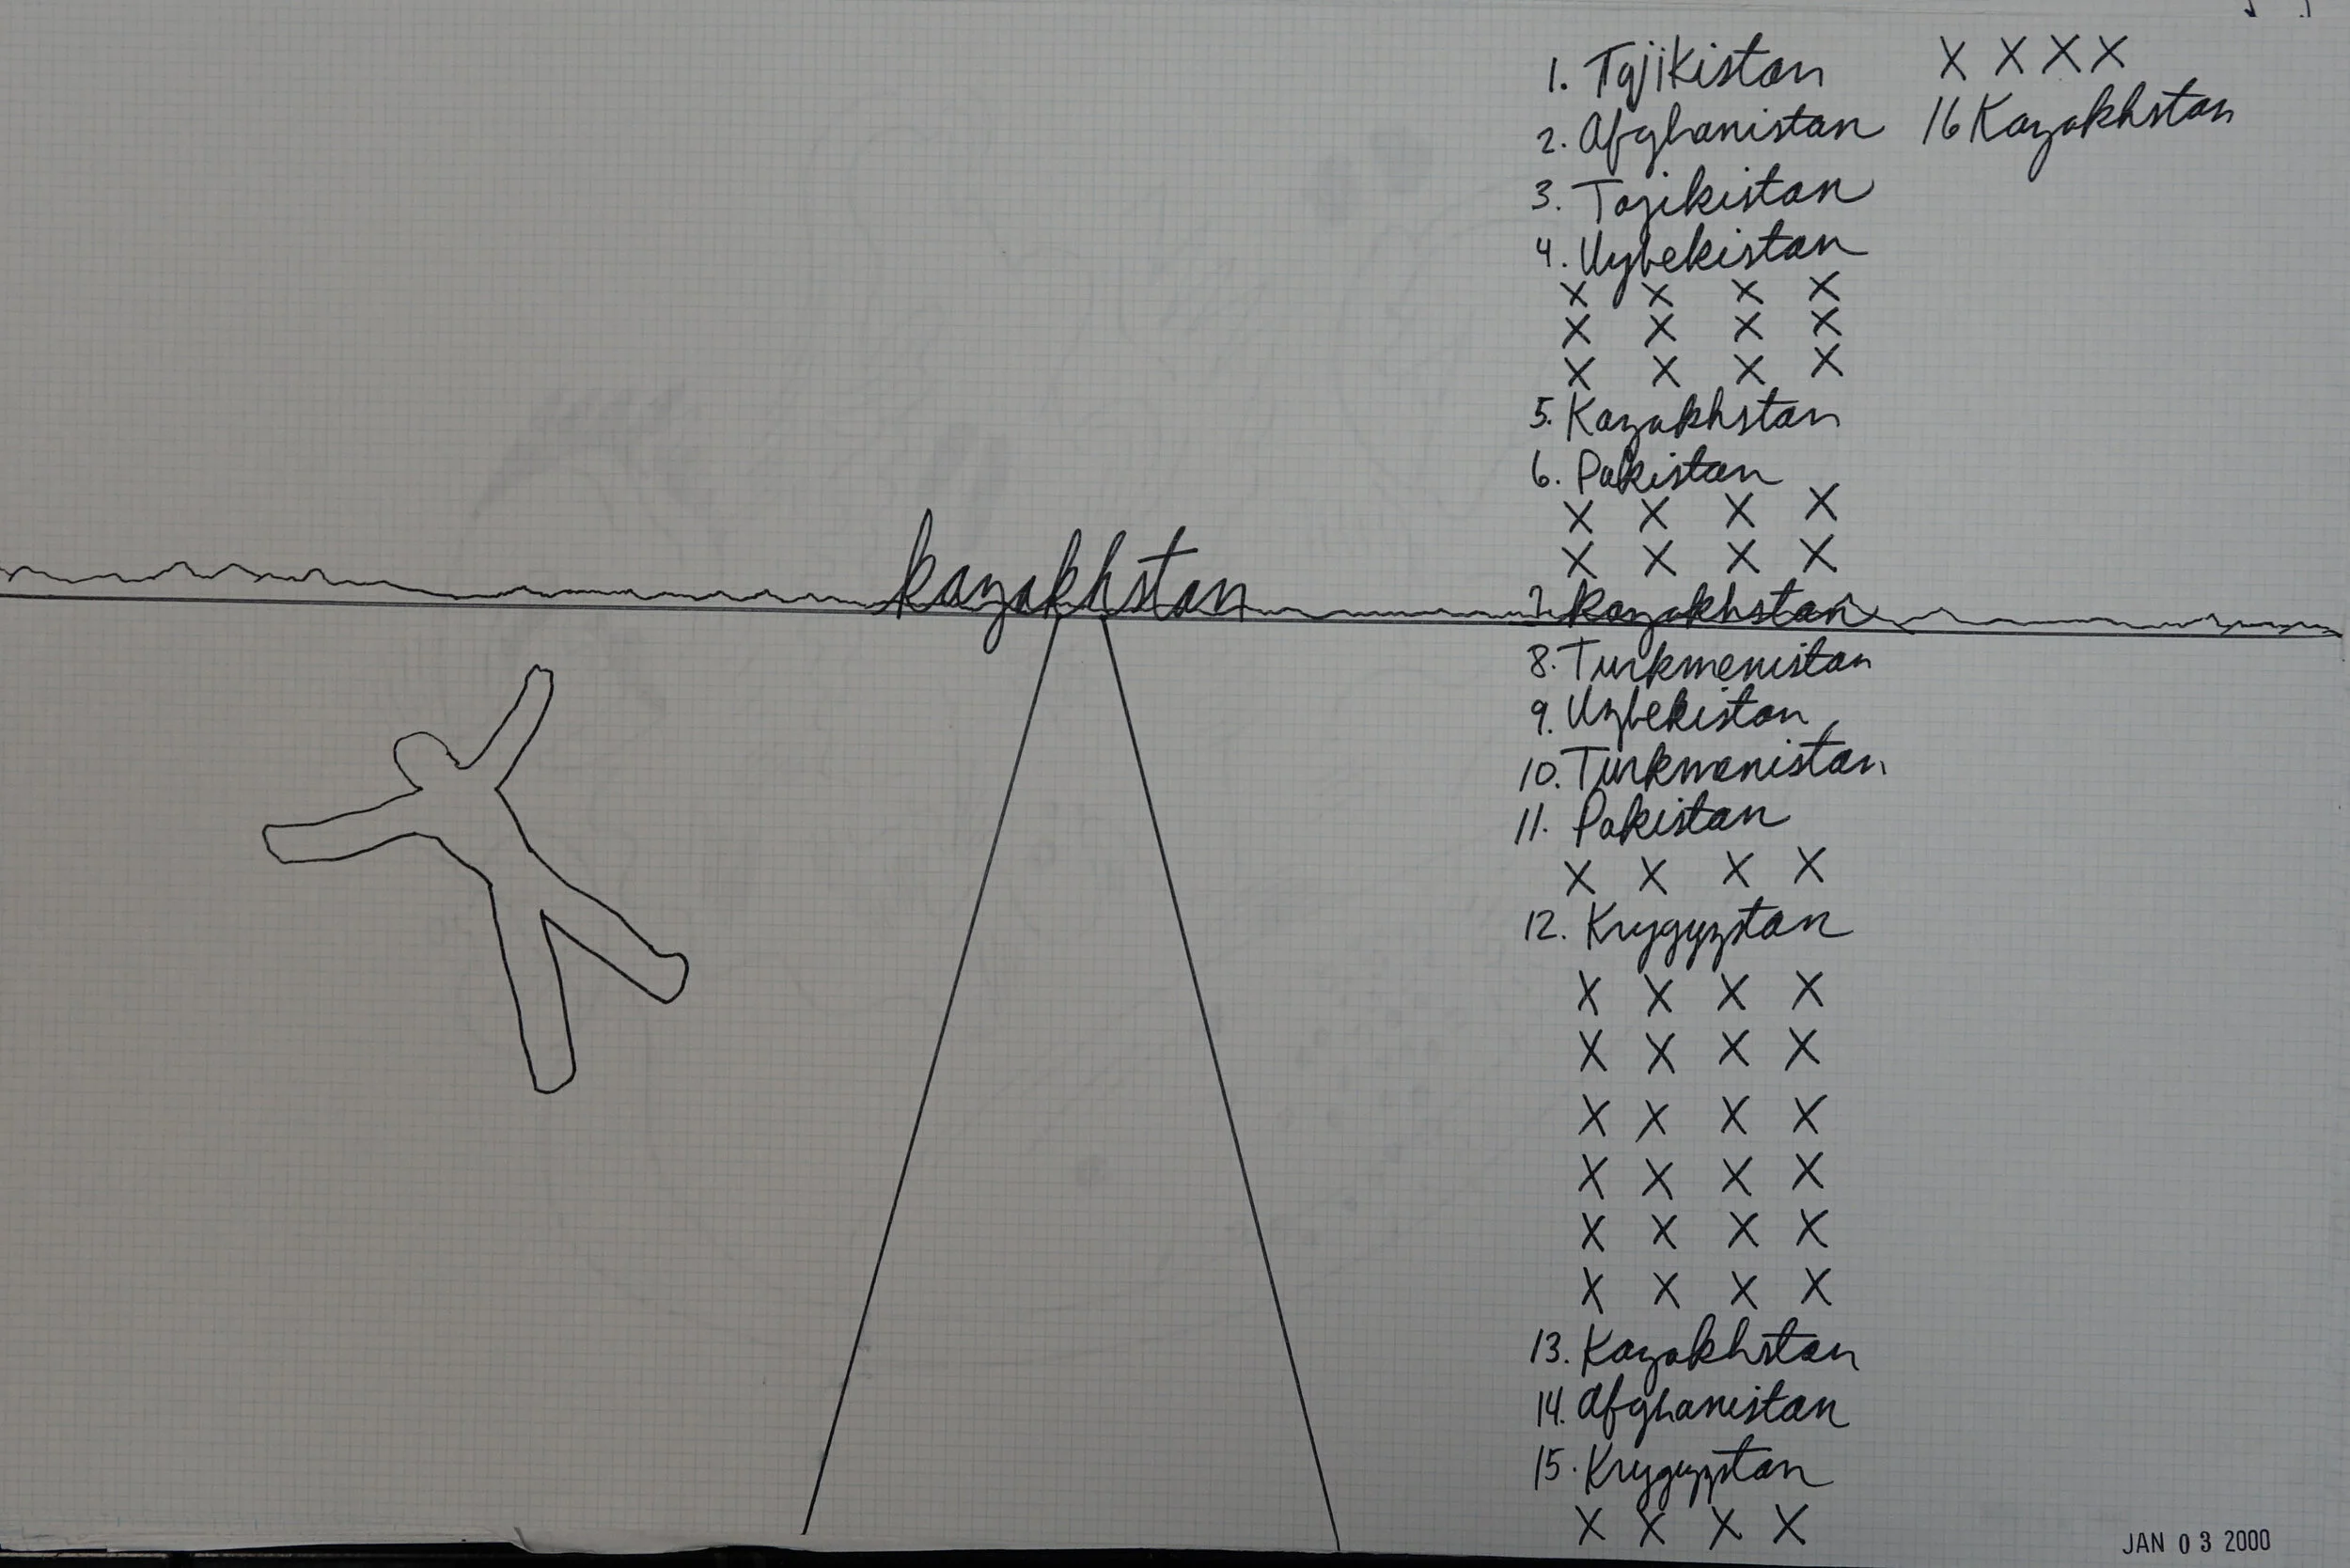 kazakhstan
1. Tajikistan
2. Afghanistan
3. Tajikistan
4. Uzbekistan
X X X X
X X X X
X X X X
5. Kazakhstan
6. Pakistan
X X X X
X X X X
7. Kazakhstan
8. Turkmenistan
9. Uzbekistan
10. Turkmenistan
11. Pakistan
X X X X
12. Krygyzstan
X X X X
X X X X
X X X X
X X X X
X X X X
X X X X
13. Kazakhstan
14. Afghanistan
15. Krygyzstan
X X X X
X X X X
16 Kazakhstan
JAN 03 2000